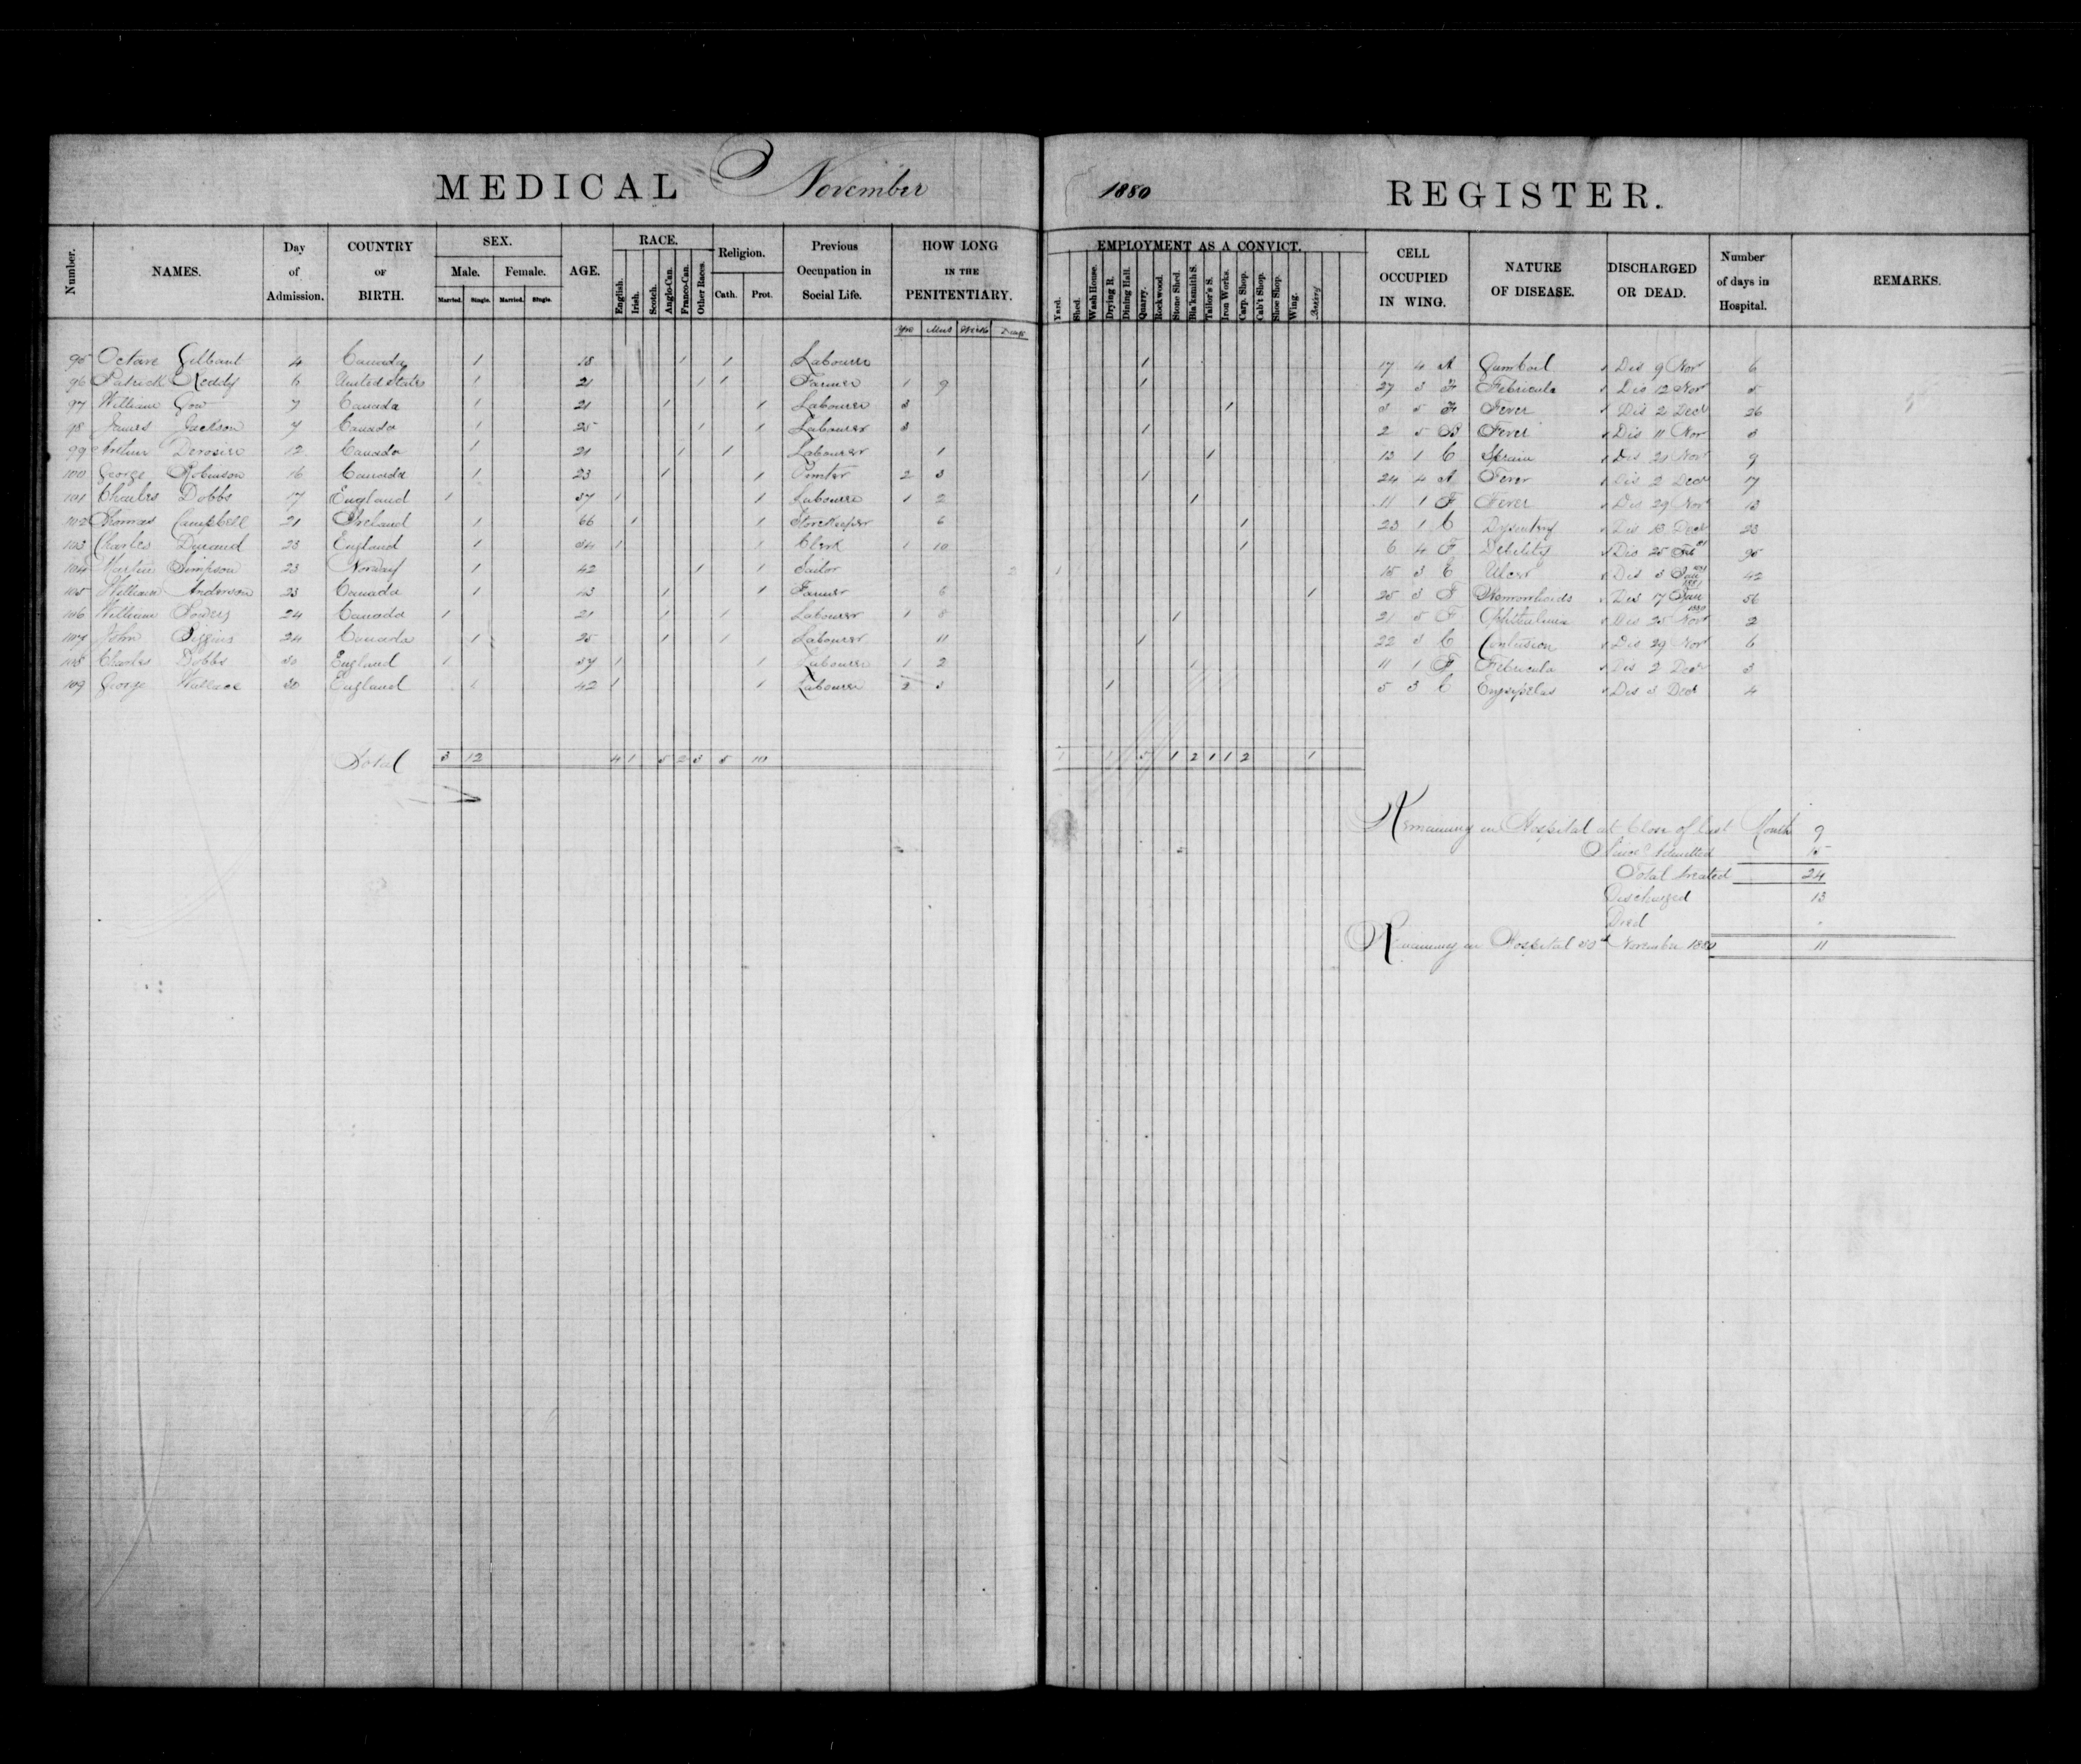 MEDICAL November 1880 REGISTER.
Number. NAMES. Day of Admission. COUNTRY OF BIRTH. SEX. Male. Female. Married. Single. Married. Single. AGE. RACE. English. Irish. Scotch. Anglo-Can. Franco-Can. Other Races. Religion. Cath. Prot. Previous Occupation in Social Life. HOW LONG IN THE PENITENTIARY. Yrs Mos Wks Days EMPLOYMENT AS A CONVICT. Yard. Shed. Wash House. Drying R. Dining Hall. Quarry. Rockwood. Stone Shed. Bla'ksmith S. Tailor's S. Iron Works. Carp. Shop. Cab't Shop. Shoe Shop. Wing. Bakery CELL OCCUPIED IN WING. NATURE OF DISEASE. DISCHARGED OR DEAD. Number of days in Hospital. REMARKS.
95 Octave Gilbant 4 Canada 1 18 1 1 Labourer 1 17 4 A Gumboil Dis 9 Nov 6
96 Patrick Reddy 6 United States 1 21 1 1 Farmer 1 9 1 27 3 F Febricula Dis 12 Nov 5
97 William Gow 7 Canada 1 21 1 1 Labourer 3 1 3 5 F Fever Dis 2 Dec 26
98 James Jackson 7 Canada 1 25 1 1 Labourer 3 1 2 5 B Fever Dis 11 Nov 3
99 Arthur Derosire 12 Canada 1 21 1 1 Labourer 1 1 13 1 C Sprain Dis 21 Nov 9
100 George Robinson 16 Canada 1 23 1 1 2 3 1 24 4 A Fever Dis 2 Dec 17
101 Charles Dobbs 17 England 1 37 1 1 Labourer 1 2 1 11 1 F Fever Dis 29 Nov 13
102 Thomas Campbell 21 Ireland 1 66 1 1 Storekeeper 6 1 23 1 C Dysentery Dis 13 Dec 23
103 Charles Durand 23 England 1 34 1 1 Clerk 1 10 1 6 4 F Debility Dis 25 Feb 81 95
104 Martin Simpson 23 Norway 1 42 1 1 Sailor 2 1 15 3 C Ulcer Dis 3 Jan 1881 42
105 William Anderson 23 Canada 1 43 1 1 Farmer 6 1 25 3 F Hemorrhoids Dis 17 Jan 1881 56
106 William Powers 24 Canada 1 21 1 1 Labourer 1 8 1 21 5 F Ophthalmia Dis 25 Nov 1880 2
107 John Diggins 24 Canada 1 25 1 1 Labourer 11 1 22 3 C Contusion Dis 29 Nov 6
108 Charles Dobbs 30 England 1 37 1 1 Labourer 1 2 1 11 1 F Febricula Dis 2 Dec 3
109 George Wallace 30 England 1 42 1 1 Labourer 2 3 1 5 3 C Erysipelas Dis 3 Dec 4
Total 3 12 4 1 5 2 3 5 10 1 1 5 1 2 1 1 2 1
Remaining in Hospital at Close of last Month 9
Since Admitted 15
Total treated 24
Discharged 13
Died
Remaining in Hospital 30th November 1880 11